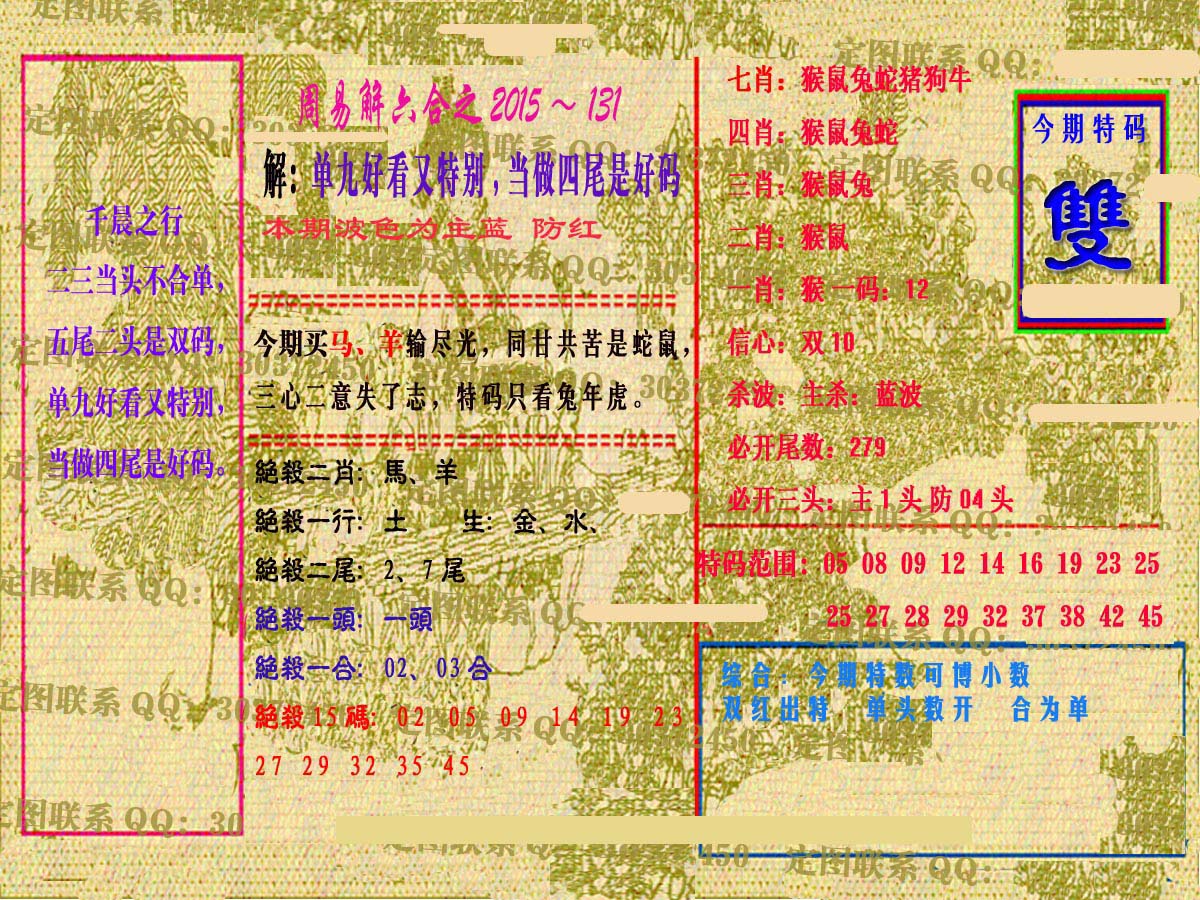 千晨之行
二三当头不合单，
五尾二头是双码，
单九好看又特别，
当做四尾是好码。
周易解六合之2015～131
解：单九好看又特别，当做四尾是好码
本期波色为主蓝 防红
今期买马、羊输尽光，同甘共苦是蛇鼠，
三心二意失了志，特码只看兔年虎。
絕殺二肖：馬、羊
絕殺一行：土 生：金、水、
絕殺二尾：2、7尾
絕殺一頭：一頭
絕殺一合：02、03合
絕殺15碼：02 05 09 14 19 23
27 29 32 35 45
七肖：猴鼠兔蛇猪狗牛
四肖：猴鼠兔蛇
三肖：猴鼠兔
二肖：猴鼠
一肖：猴 一码：12
信心：双10
杀波：主杀：蓝波
必开尾数：279
必开三头：主1头防04头
今期特码
雙
特码范围：05 08 09 12 14 16 19 23 25
25 27 28 29 32 37 38 42 45
综合：今期特数可博小数
双红出特 单头数开 合为单
定图联系 QQ：